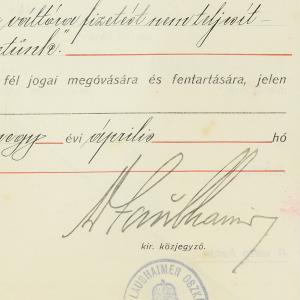 váltóra fizetést nem teljesít-
etünk."
fél jogai megóvására és fentartására, jelen
négy évi április hó
Dr Laubhaimer
kir. közjegyző.
LAUBHAIMER OSZK